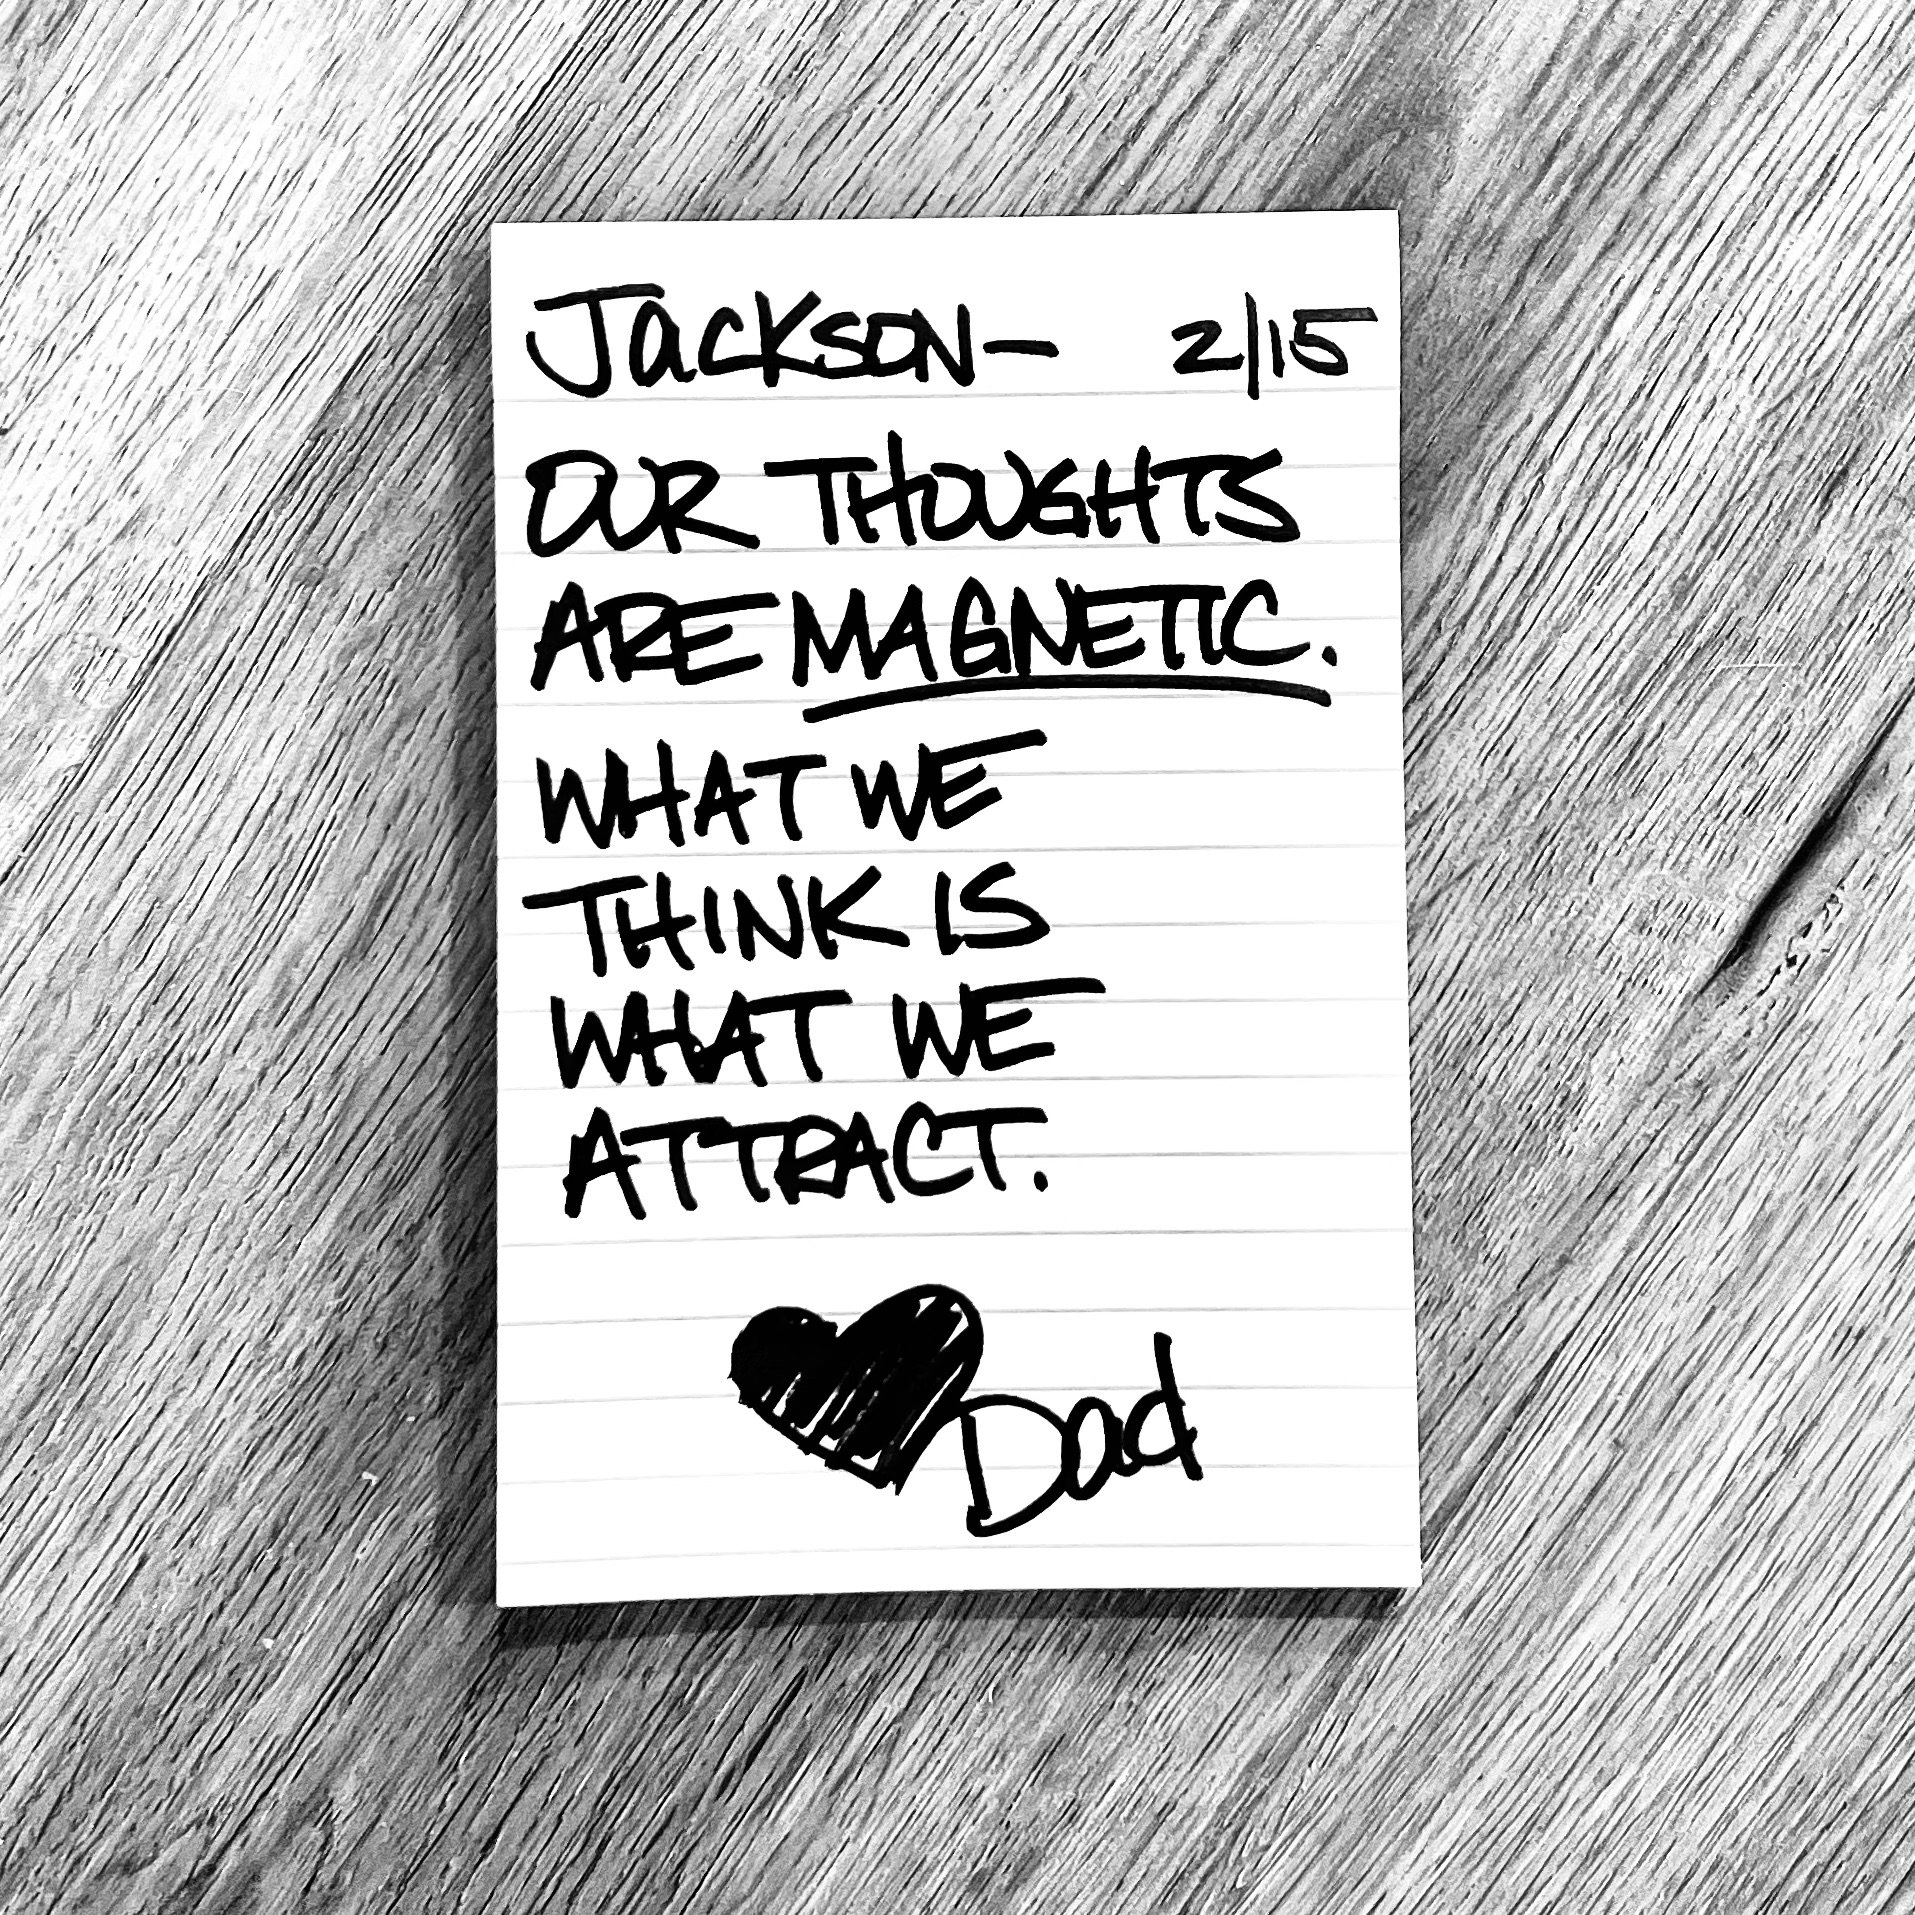 Jackson— 2/15
OUR THOUGHTS
ARE MAGNETIC.
WHAT WE
THINK IS
WHAT WE
ATTRACT.
Dad